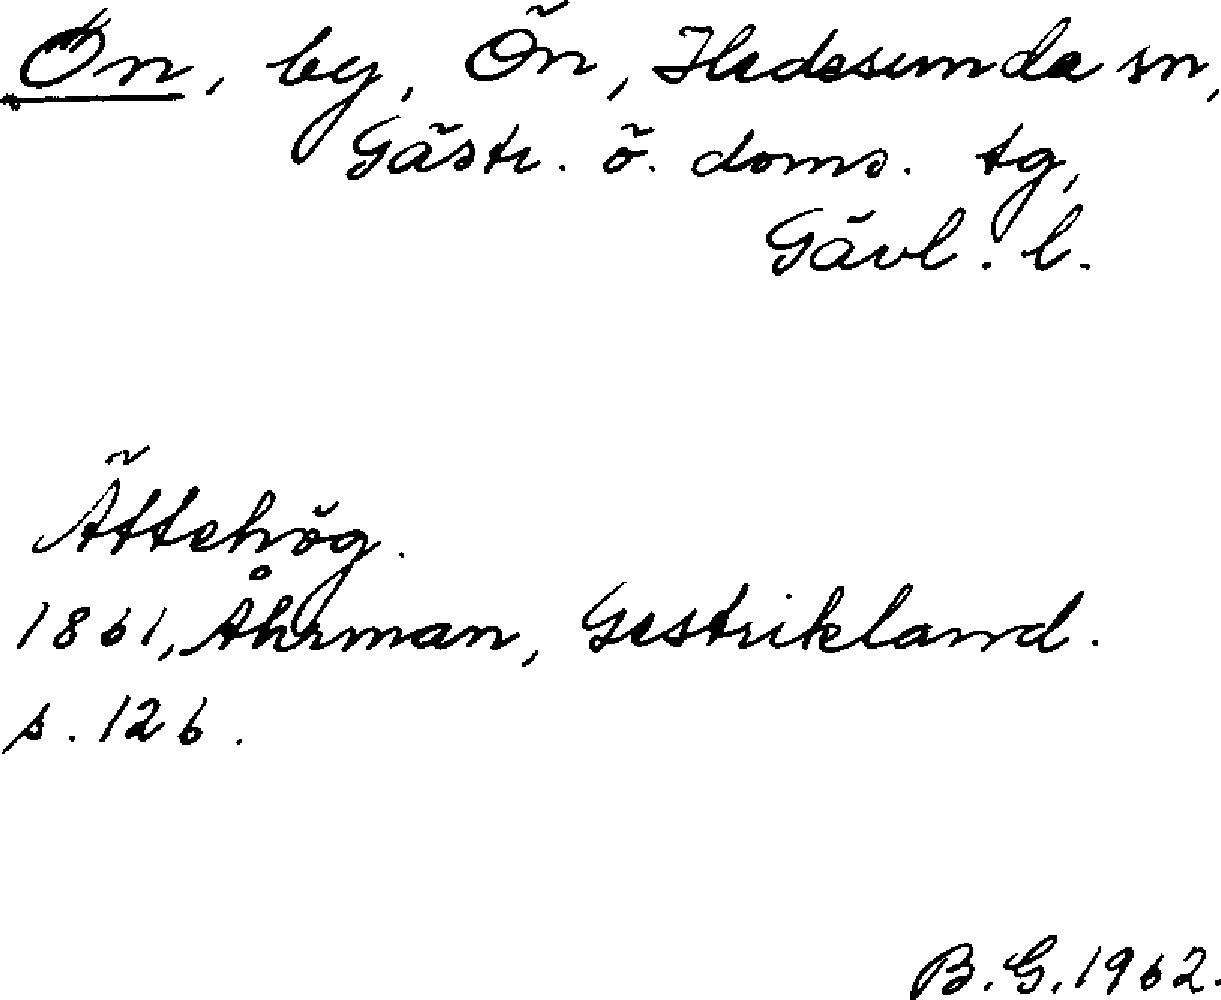 Ön, by, Ön, Hedesunda sn,
Gästr. ö. doms. tg,
Gävl. l.
Ättehög.
1861, Åhrman, Gestrikland.
s. 126.
B. G. 1962.